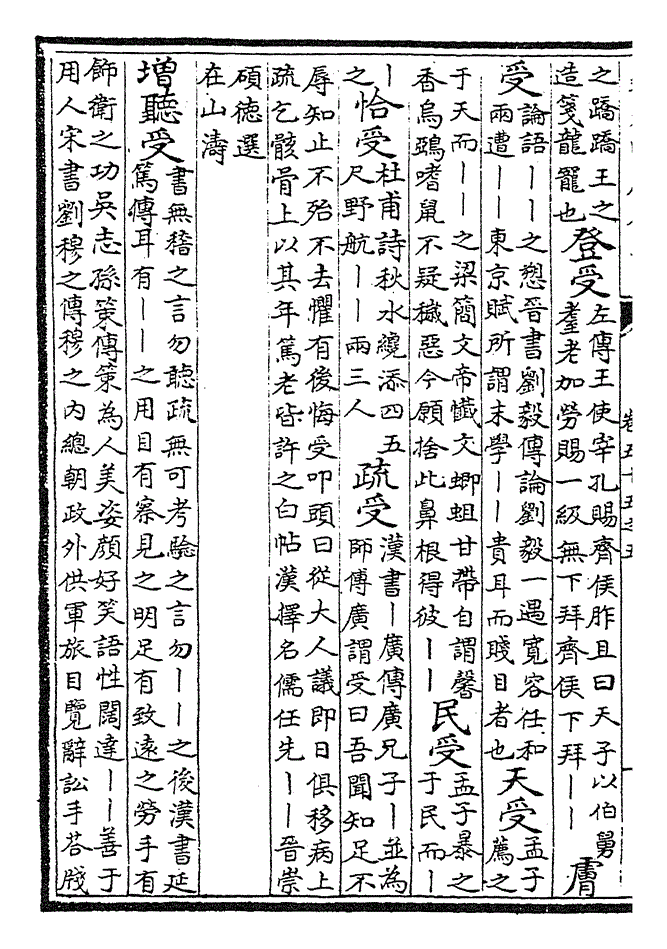 之蹻蹻王之
造箋龍寵也
登受
左傳王使宰孔賜齊侯胙且曰天子以伯舅
耋老加勞賜一級無下拜齊侯下拜丨丨
膚
受
論語丨丨之愬晉書劉毅傳論劉毅一遇寬容任和
兩遭丨丨東京賦所謂末學丨丨貴耳而賤目者也
天受
孟子薦之
于天而丨丨之梁簡文帝懺文蝍蛆甘帶自謂馨
香烏鵶嗜鼠不疑穢惡今願捨此鼻根得彼丨丨
民受
孟子暴之
于民而丨
丨之
恰受
杜甫詩秋水纔添四五
尺野航丨丨兩三人
疏受
漢書丨廣傳廣兄子丨並為
師傅廣謂受曰吾聞知足不
辱知止不殆不去懼有後悔受叩頭曰從大人議即日俱移病上
疏乞骸骨上以其年篤老皆許之白帖漢擇名儒任先丨丨晉崇
碩德選
在山濤
增聽受
書無稽之言勿聽疏無可考驗之言勿丨丨之後漢書延
篤傳耳有丨丨之用目有察見之明足有致遠之勞手有
飾衛之功吳志孫策傳策為人美姿顏好笑語性闊達丨丨善于
用人宋書劉穆之傳穆之內總朝政外供軍旅目覽辭訟手答牋